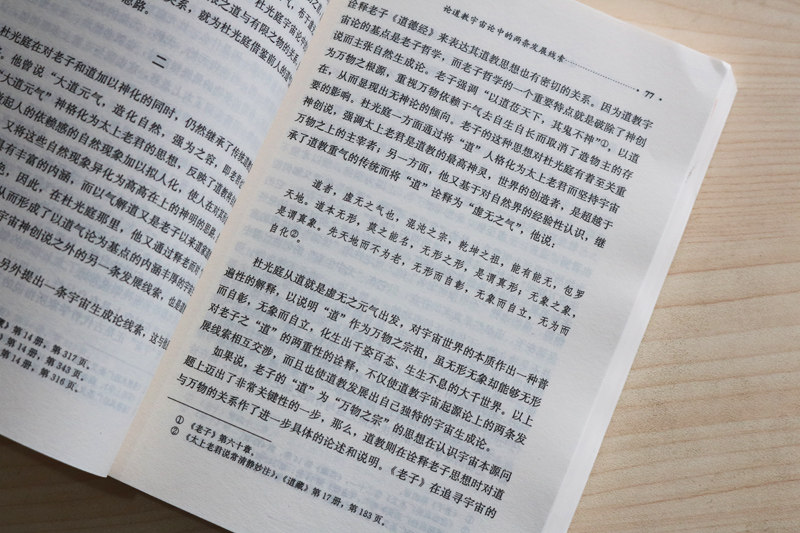 思路。
关系，就为杜光庭借鉴前人的
二
杜光庭在对老子和道加以神化的同时，仍然继承了传统道
他曾说“大道元气，造化自然，强为之容，即老
“大道元气”神格化为太上老君的思想，反映了道教
起人的依赖感的自然现象加以拟人化，使人在对其
又将这些自然现象异化为高高在上的神明的思想，
有丰富的内涵，而以气解道又是老子以来道家
色，因此，在杜光庭那里，他又通过释老而
从而形成了以道气论为基点的内涵丰厚的宇
宇宙神创说之外的另一条发展线索，也是
另外提出一条宇宙生成论线索，这与
》第14册，第317页。
第14册，第343页。
第14册，第316页。
论道教宇宙论中的两条发展线索
· 77 ·
诠释老子《道德经》来表达其道教思想也有密切的关系。因为道教宇
宙论的基点是老子哲学，而老子哲学的一个重要特点就是破除了神创
说而主张自然生成论。老子强调“以道莅天下，其鬼不神”①，以道
为万物之根源，重视万物依赖于气去自生自长而取消了造物主的存
在，从而显现出无神论的倾向。老子的这种思想对杜光庭有着至关重
要的影响。杜光庭一方面通过将“道”人格化为太上老君而坚持宇宙
神创说，强调太上老君是道教的最高神灵，世界的创造者，是超越于
万物之上的主宰者；另一方面，他又基于对自然界的经验性认识，继
承了道教重气的传统而将“道”诠释为“虚无之气”，他说：
道者，虚无之气也，混沌之宗，乾坤之祖，能有能无，包罗
天地。道本无形，莫之能名，无形之形，是谓真形，无象之象，
是谓真象。先天地而不为老，无形而自彰，无象而自立，无为而
自化②。
杜光庭从道就是虚无之元气出发，对宇宙世界的本质作出一种普
遍性的解释，以说明“道”作为万物之宗祖，虽无形无象却能够无形
而自彰，无象而自立，化生出千姿百态、生生不息的大千世界。以上
对老子之“道”的两重性的诠释，不仅使道教宇宙起源论上的两条发
展线索相互交涉，而且也使道教发展出自己独特的宇宙生成论。
如果说，老子的“道”为“万物之宗”的思想在认识宇宙本源问
题上迈出了非常关键性的一步，那么，道教则在诠释老子思想时对道
与万物的关系作了进一步具体的论述和说明。《老子》在追寻宇宙的
① 《老子》第六十章。
② 《太上老君说常清静妙注》，《道藏》第17册，第183页。